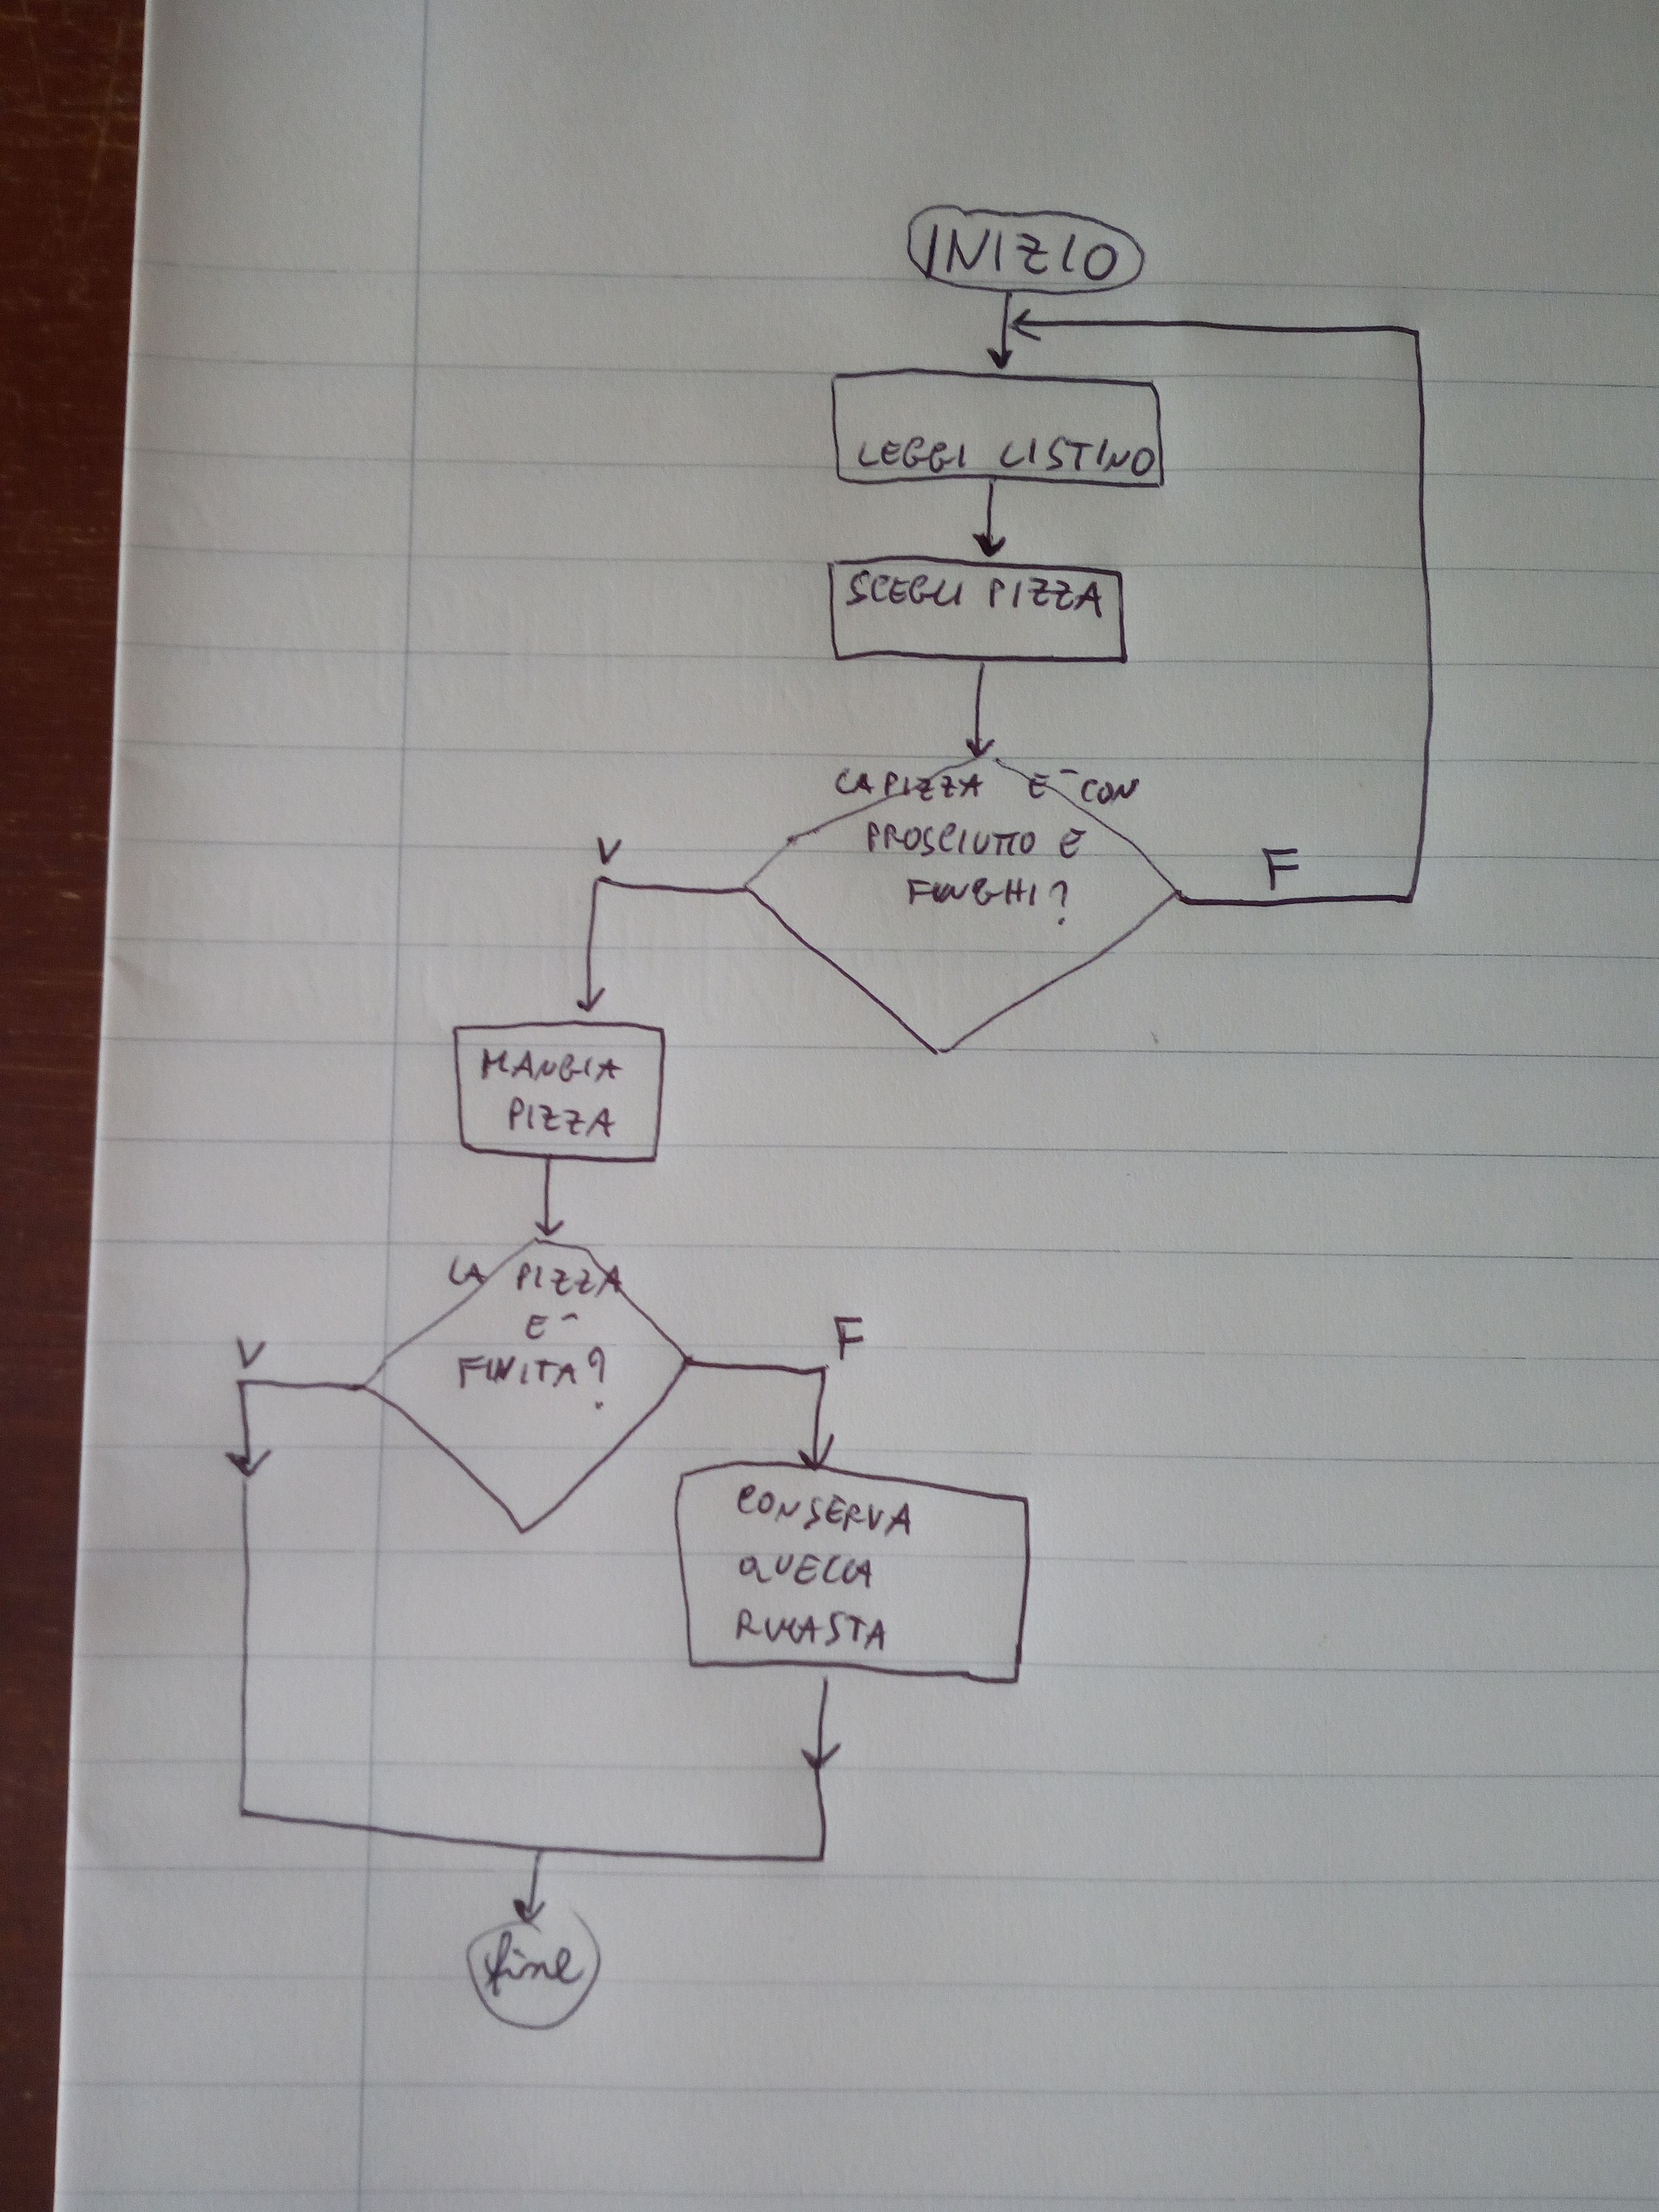 INIZIO
LEGGI LISTINO
SCEGLI PIZZA
LA PIZZA E' CON
PROSCIUTTO E
FUNGHI?
V
F
MANGIA
PIZZA
LA PIZZA
E'
FINITA?
V
F
CONSERVA
QUELLA
RIMASTA
fine